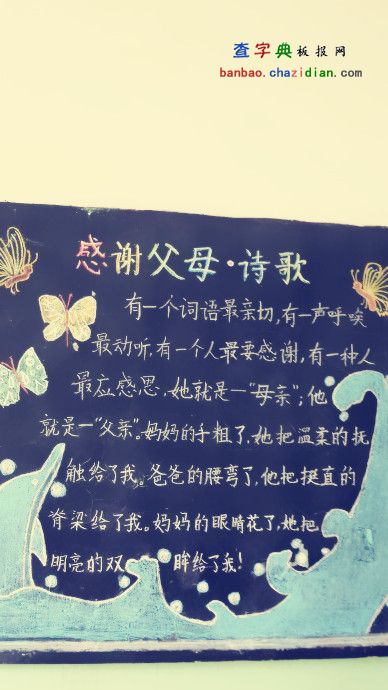 查字典板报网
banbao.chazidian.com
感谢父母·诗歌
有一个词语最亲切,有一声呼唤
最动听,有一个人最要感谢,有一种人
最应感恩,她就是一"母亲";他
就是一"父亲"。妈妈的手粗了,她把温柔的抚
触给了我。爸爸的腰弯了,他把挺直的
脊梁给了我。妈妈的眼睛花了,她把
明亮的双眸给了我!